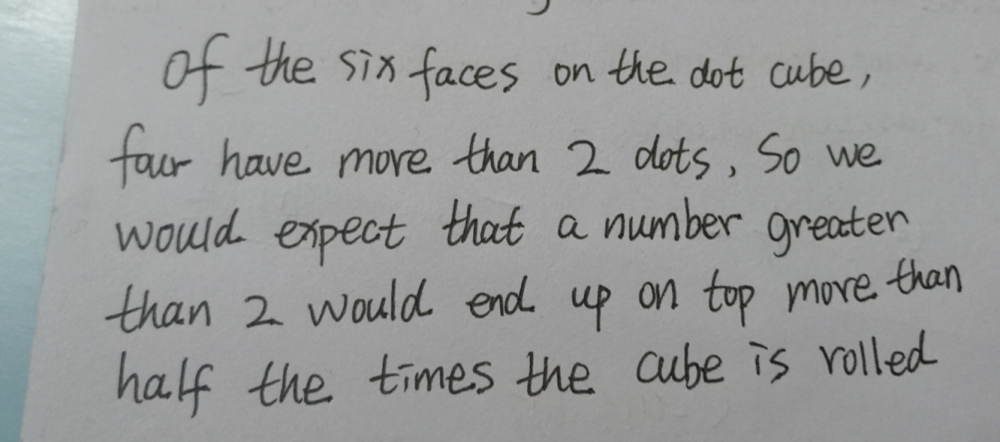 Of the six faces on the dot cube,
four have more than 2 dots, So we
would expect that a number greater
than 2 would end up on top more than
half the times the cube is rolled